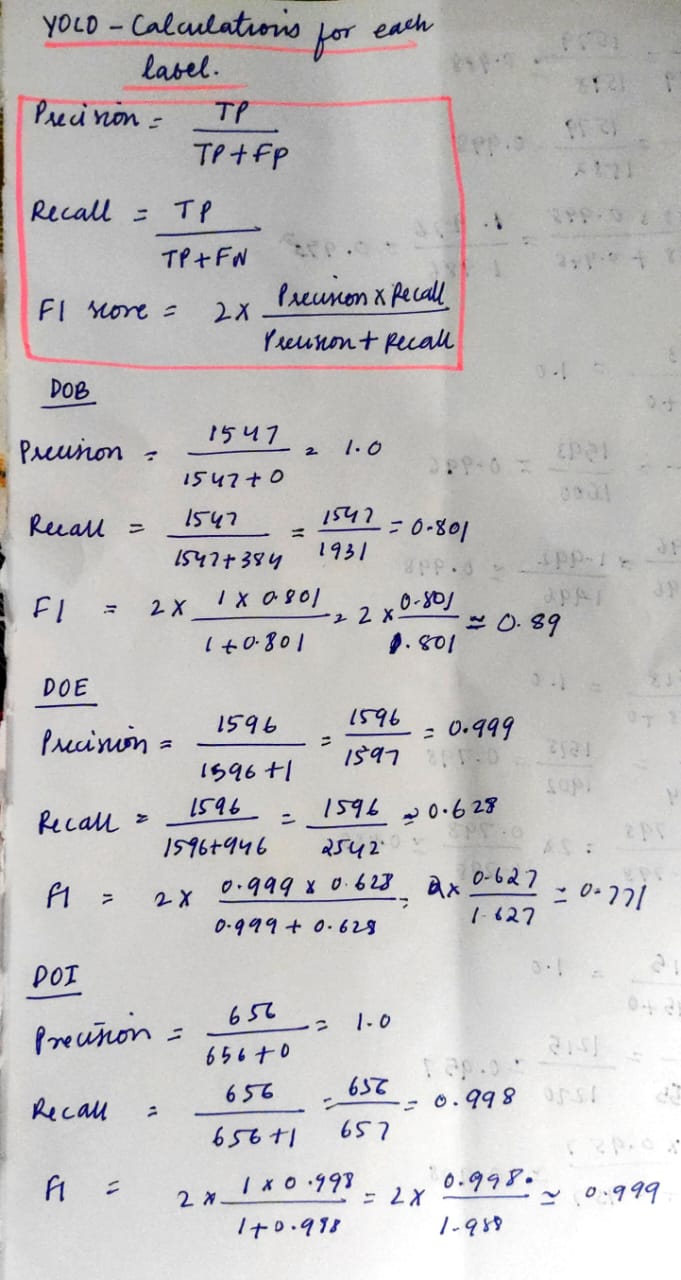 YOLO - Calculations for each
label.
Precision = TP / TP + FP
Recall = TP / TP + FN
F1 score = 2 x Precision x Recall / Precision + Recall
DOB
Precision = 1547 / 1547 + 0 = 1.0
Recall = 1547 / 1547 + 384 = 1547 / 1931 = 0.801
F1 = 2 x 1 x 0.801 / 1 + 0.801 = 2 x 0.801 / 1.801 ≈ 0.89
DOE
Precision = 1596 / 1596 + 1 = 1596 / 1597 = 0.999
Recall = 1596 / 1596 + 946 = 1596 / 2542 ≈ 0.628
F1 = 2 x 0.999 x 0.628 / 0.999 + 0.628 = 2 x 0.627 / 1.627 ≈ 0.771
DOI
Precision = 656 / 656 + 0 = 1.0
Recall = 656 / 656 + 1 = 656 / 657 = 0.998
F1 = 2 x 1 x 0.998 / 1 + 0.998 = 2 x 0.998 / 1.988 ≈ 0.999